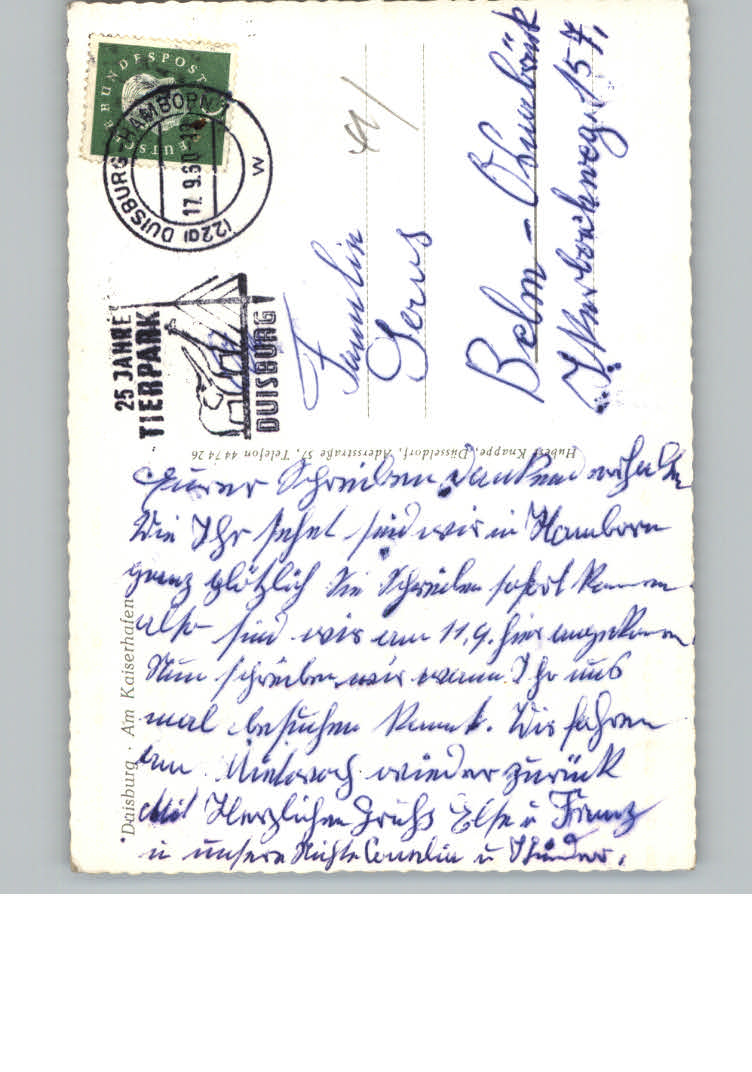 DEUTSCHE BUNDESPOST
(22a) DUISBURG-HAMBORN 1
17.9.60
w
25 JAHRE
TIERPARK
DUISBURG
Familie
Belm - Osnabrück
157,
Hubert Knappe, Düsseldorf, Adersstraße 57, Telefon 447426
Duisburg · Am Kaiserhafen
Euer Schreiben dankend erhalten
Wie Ihr sehet sind wir in Hamborn
ganz plötzlich die Schreiben sofort kamen
also sind wir am 11.9. hier angekomen
Nun schreiben wir wann Ihr uns
mal besuchen kannt. Wir fahren
am Mittwoch wieder zurück
Mit Herzlichen Gruhs Else u Franz
u unsere Nichte u Kinder.